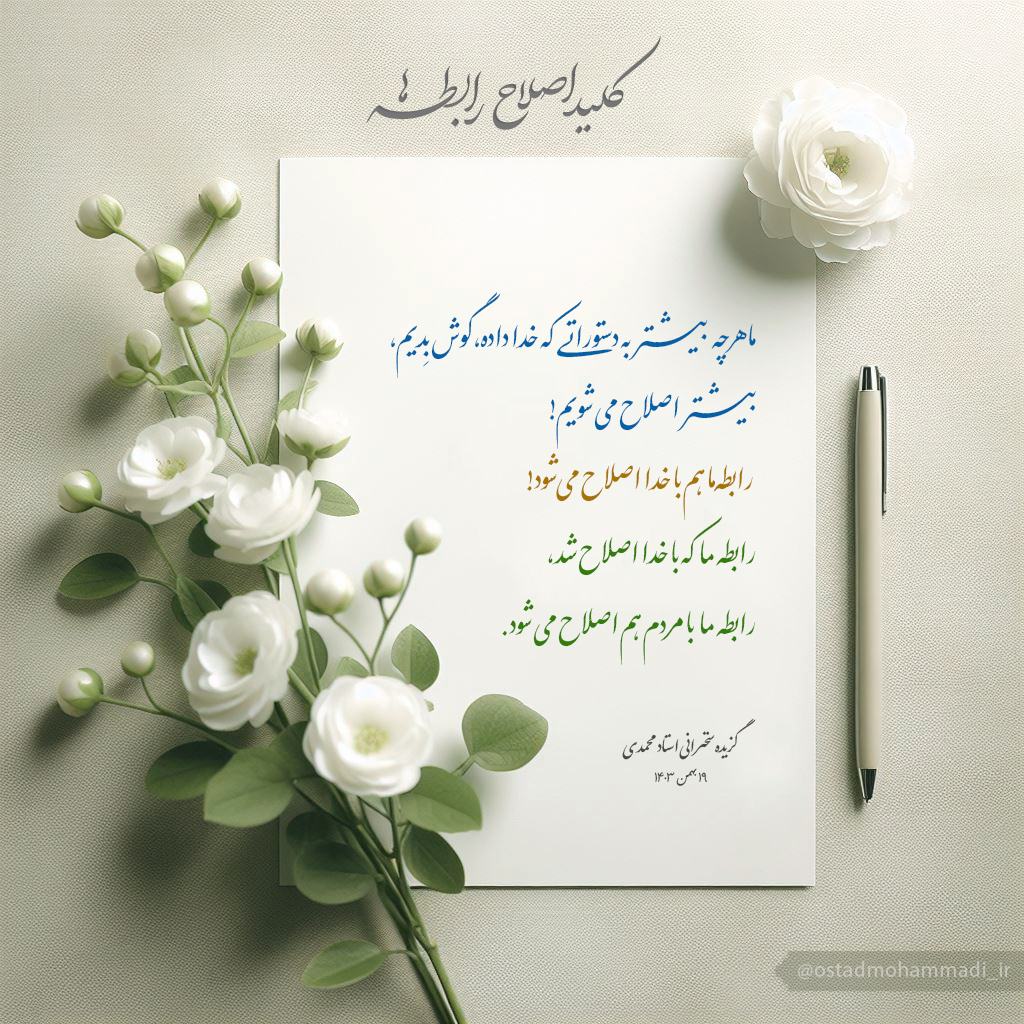 کلید اصلاح رابطه ها
ما هر چه بیشتر به دستوراتی که خدا داده، گوش بِدیم،
بیشتر اصلاح می شویم!
رابطه ما هم با خدا اصلاح می شود!
رابطه ما که با خدا اصلاح شد،
رابطه ما با مردم هم اصلاح می شود.
گزیده سخنرانی استاد محمدی
۱۹ بهمن ۱۴۰۳
@ostadmohammadi_ir